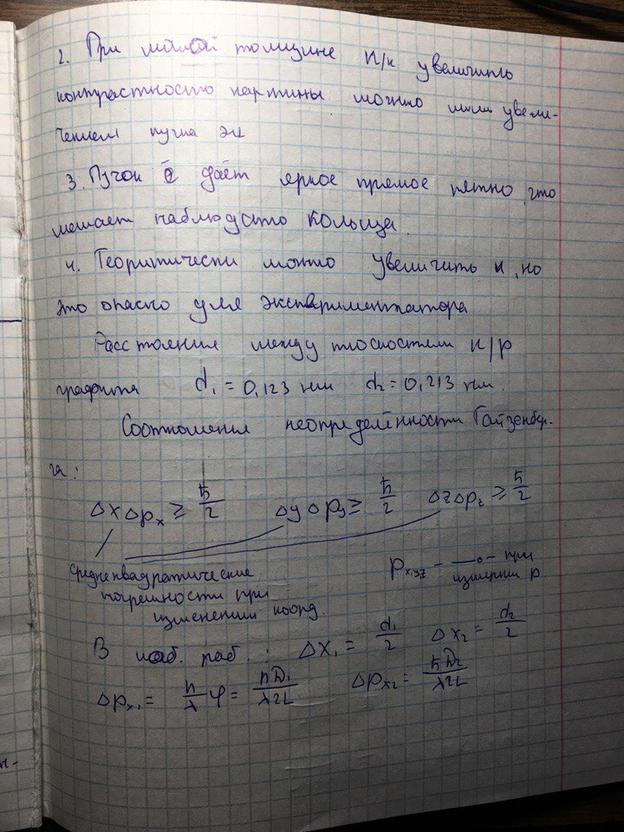 2. При малой толщине п/к увеличить
контрастность картины можно лишь увели-
чением пучка эл
3. Пучок ē даёт яркое прямое пятно, что
мешает наблюдать кольца.
4. Теоритически можно увеличить н, но
это опасно для экспериментатора
Расстояния между плоскостями к/р
графита d₁ = 0,123 нм d₂ = 0,213 нм
Соотношения неопределённости Гайзенбер-
га:
Δx Δpₓ ≥ ħ/2 Δy Δp_y ≥ ħ/2 Δz Δp_z ≥ ħ/2
среднеквадратические
погрешности при
изменении коорд.
p_x,y,z - —〃— при
измерении p
В лаб. раб.: Δx₁ = d₁/2 Δx₂ = d₂/2
Δpₓ₁ = h/λ φ = hD₁/λ2L Δpₓ₂ = hD₂/λ2L